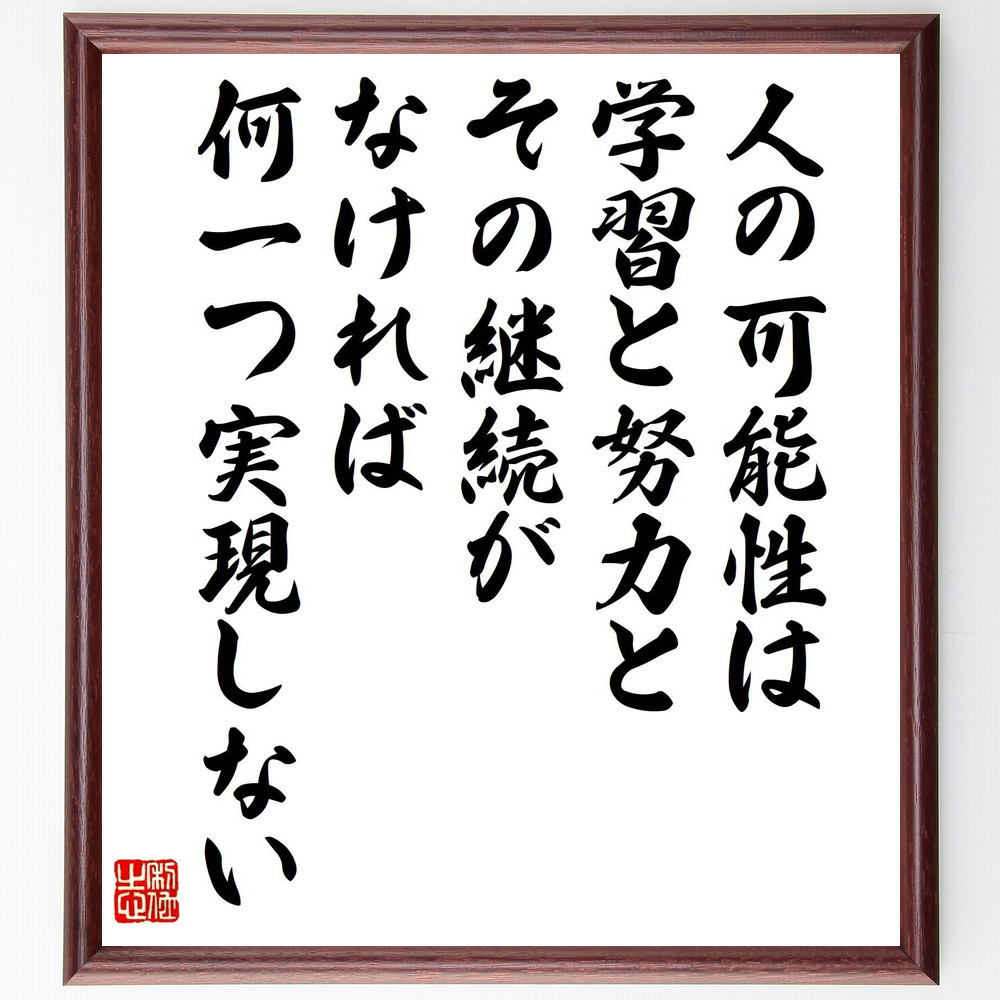 人の可能性は
学習と努力と
その継続が
なければ
何一つ実現しない